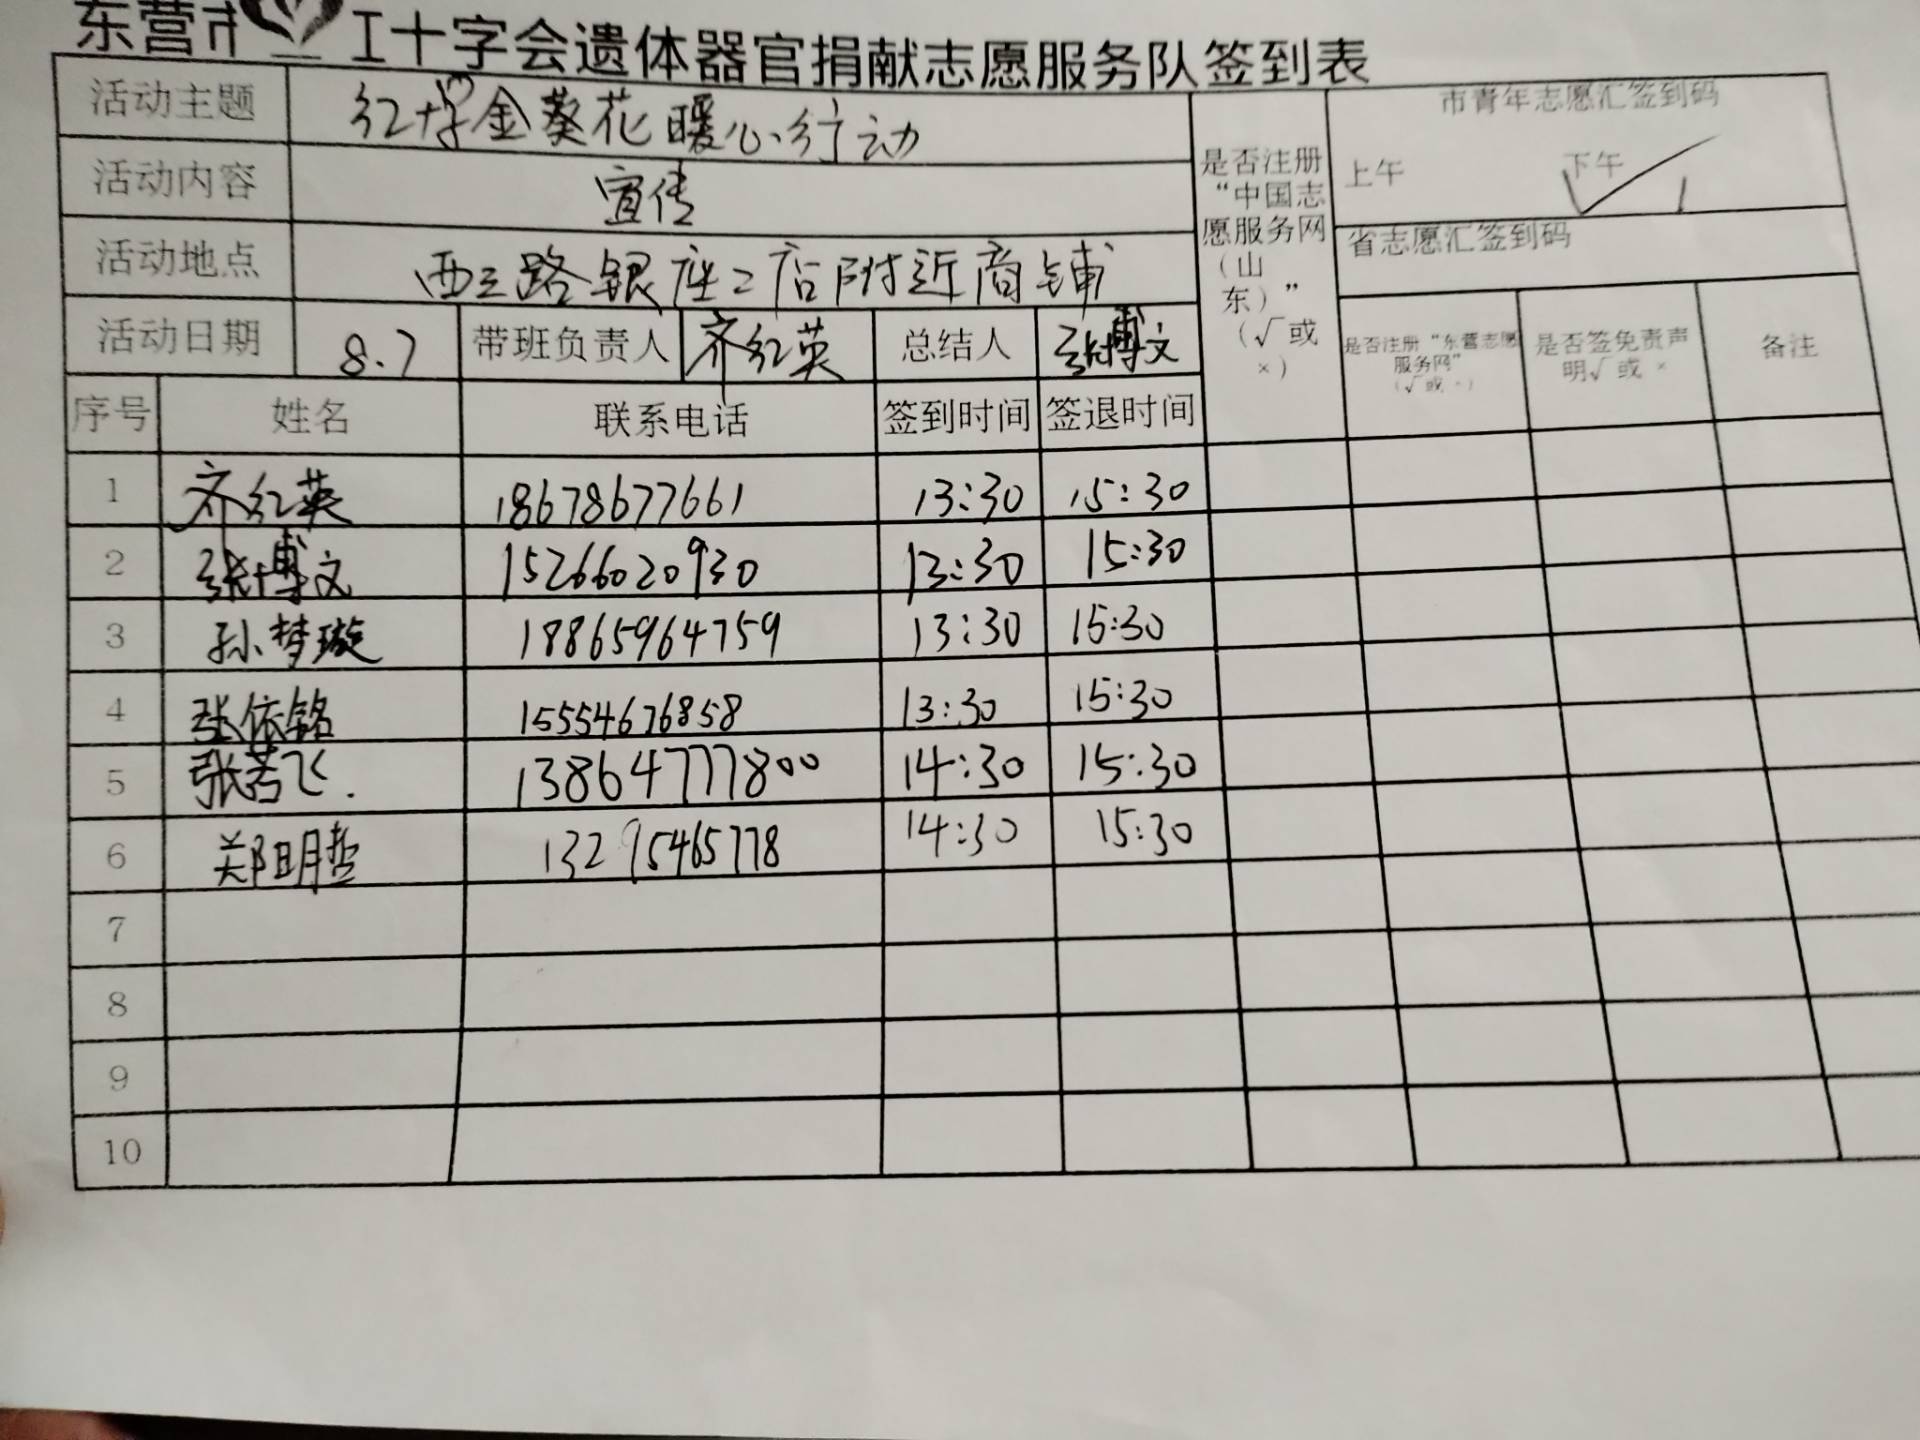 东营市红十字会遗体器官捐献志愿服务队签到表
活动主题 红十字金葵花暖心行动
市青年志愿汇签到码
上午 下午 √
活动内容 宣传
是否注册“中国志愿服务网（山东）”（√或×）
省志愿汇签到码
活动地点 西三路银座二店附近商铺
活动日期 8.7 带班负责人 齐红英 总结人 张博文
是否注册“东营志愿服务网”（√或×） 是否签免责声明√或× 备注
序号 姓名 联系电话 签到时间 签退时间
1 齐红英 18678677661 13:30 15:30
2 张博文 15266020930 13:30 15:30
3 孙梦璇 18865964759 13:30 15:30
4 张依铭 15554676858 13:30 15:30
5 张若飞. 13864777800 14:30 15:30
6 郑明哲 13295465778 14:30 15:30
7
8
9
10